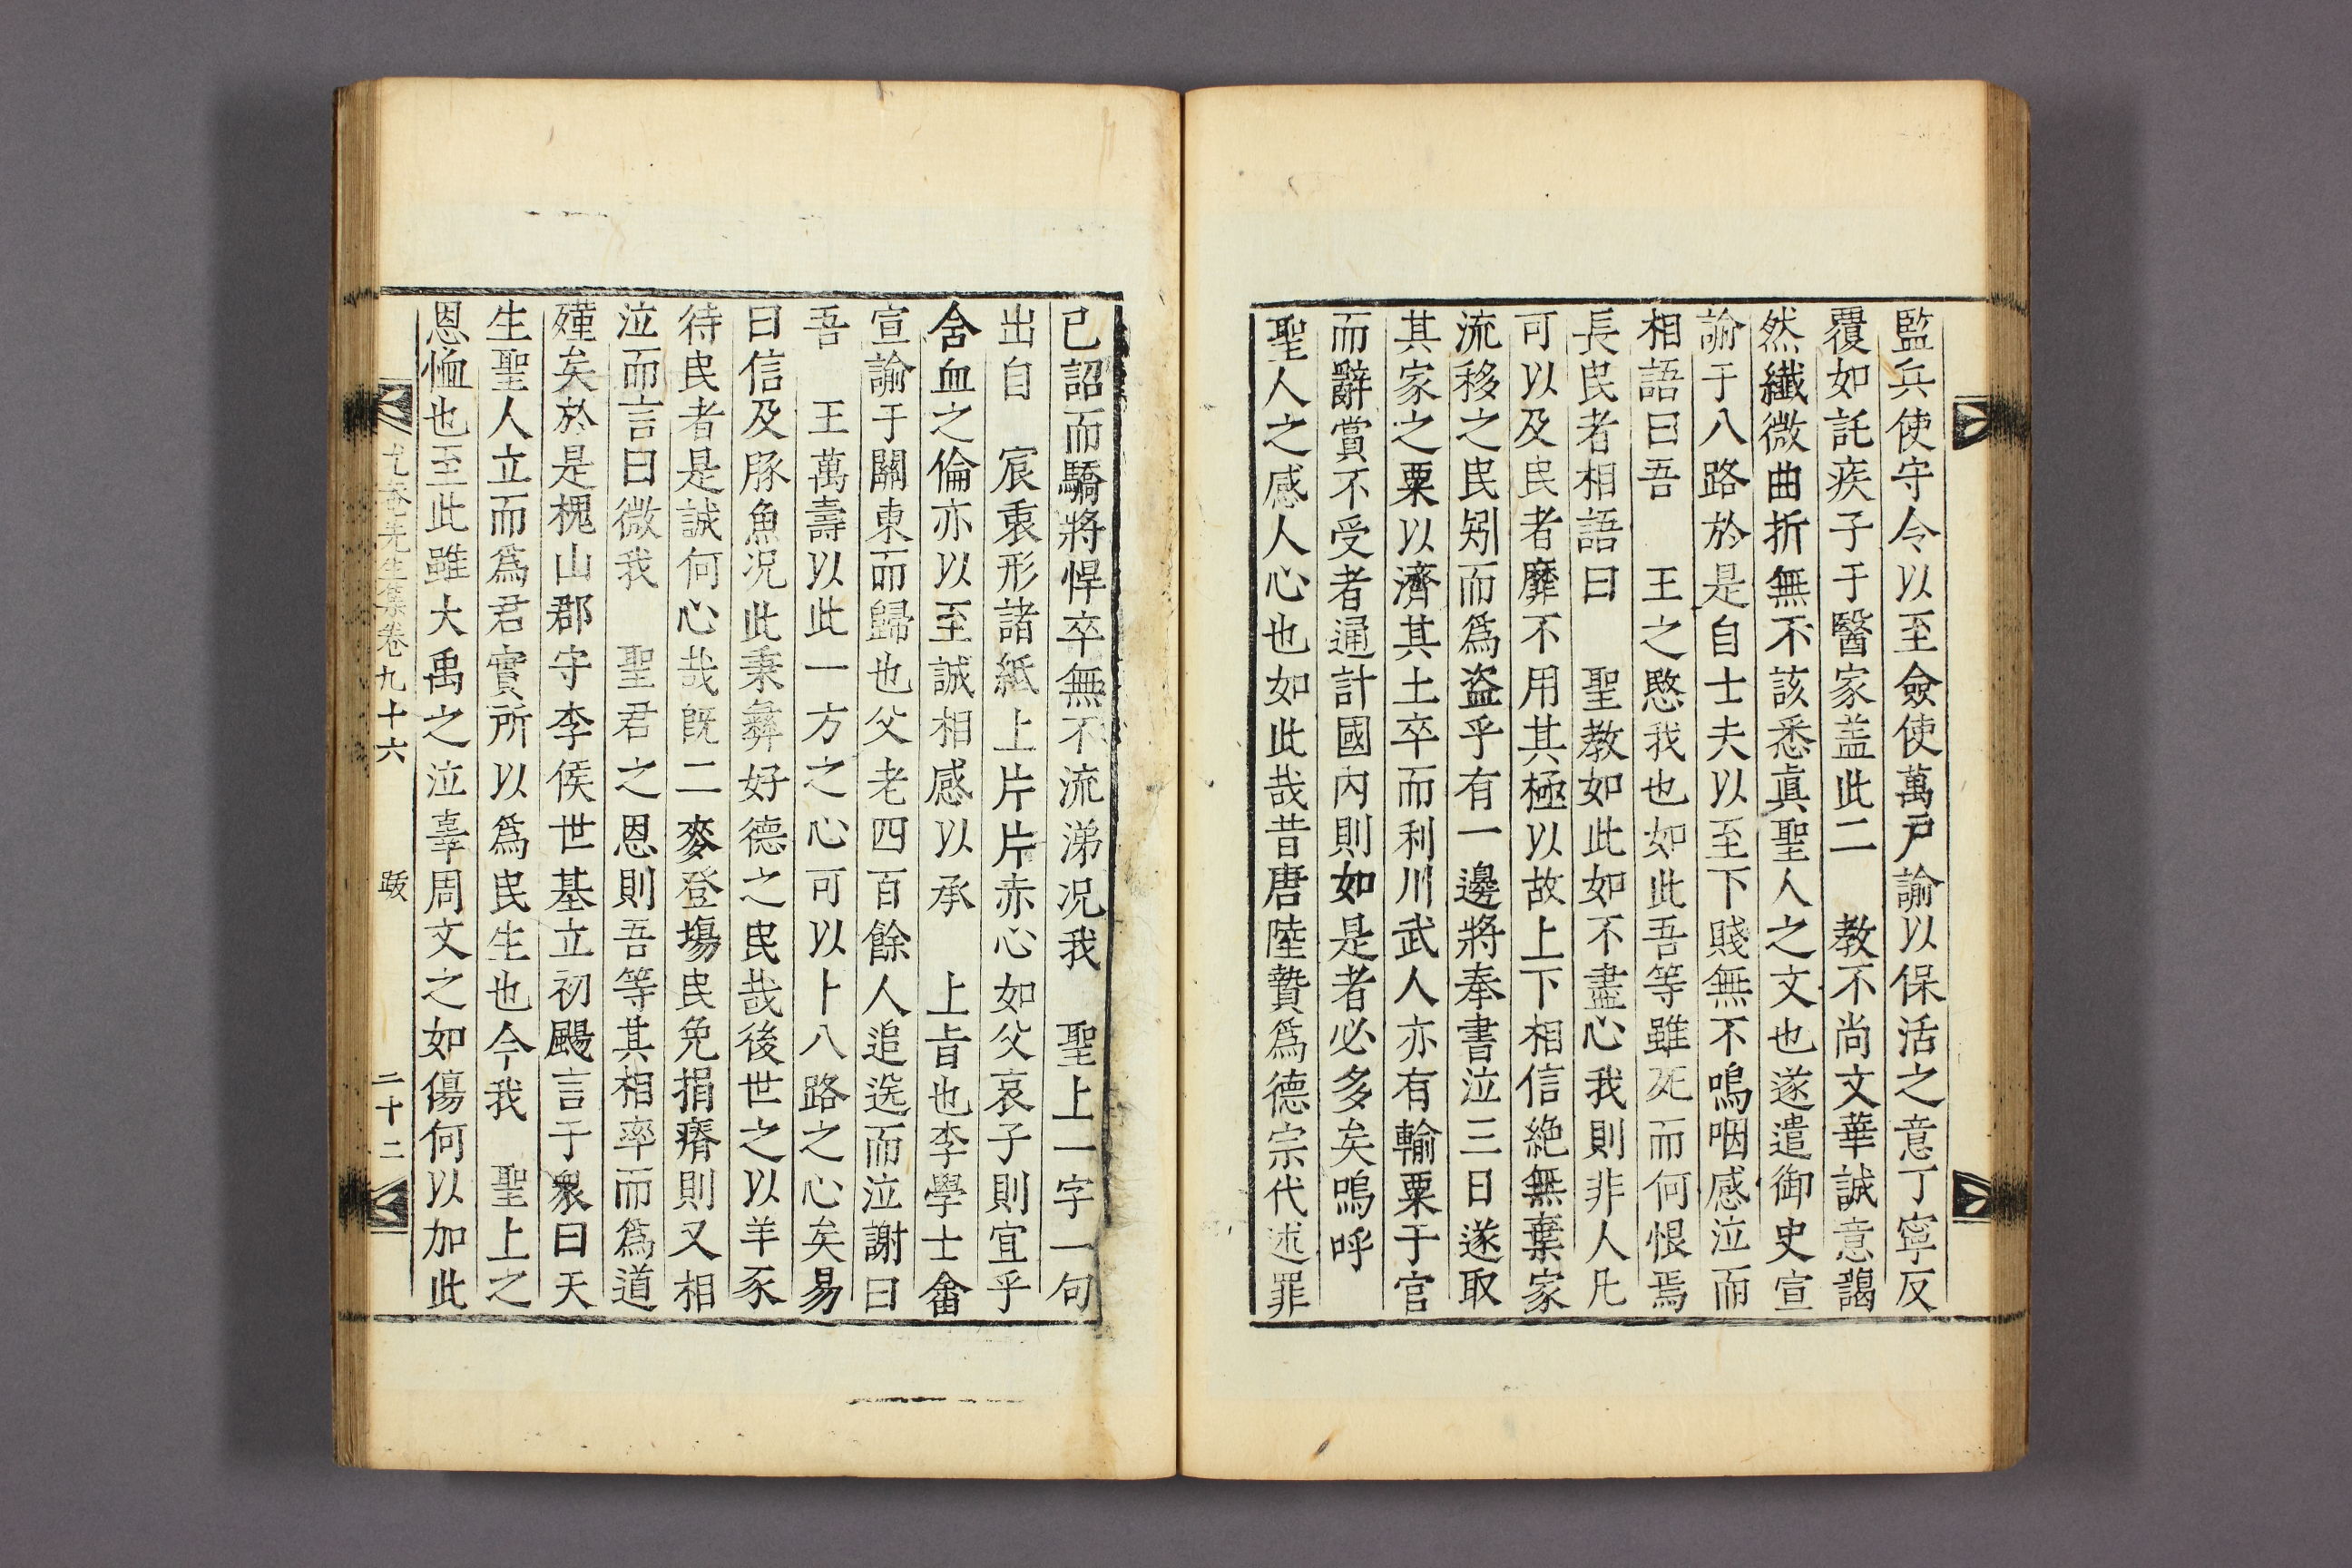 監兵使守令以至僉使萬戶諭以保活之意丁寧反
覆如託疾子于醫家盖此二　教不尚文華誠意藹
然纖微曲折無不該悉眞聖人之文也遂遣御史宣
諭于八路於是自士夫以至下賤無不嗚咽感泣而
相語曰吾　王之愍我也如此吾等雖死而何恨焉
長民者相語曰　聖教如此如不盡心我則非人凡
可以及民者靡不用其極以故上下相信絶無棄家
流移之民矧而爲盗乎有一邊將奉書泣三日遂取
其家之粟以濟其土卒而利川武人亦有輸粟于官
而辭賞不受者通計國內則如是者必多矣嗚呼
聖人之感人心也如此哉昔唐陸贄爲德宗代述罪
已詔而驕將悍卒無不流涕况我　聖上一字一句
出自　宸衷形諸紙上片片赤心如父哀子則宜乎
含血之倫亦以至誠相感以承　上旨也李學士畬
宣諭于關東而歸也父老四百餘人追送而泣謝曰
吾　王萬壽以此一方之心可以卜八路之心矣易
曰信及豚魚况此秉彜好德之民哉後世之以羊豕
待民者是誠何心哉旣二麥登場民免捐瘠則又相
泣而言曰微我　聖君之恩則吾等其相率而爲道
殣矣於是槐山郡守李侯世基立初颺言于衆曰天
生聖人立而爲君實所以爲民生也今我　聖上之
恩恤也至此雖大禹之泣辜周文之如傷何以加此
尤菴先生集卷九十六　跋　二十二